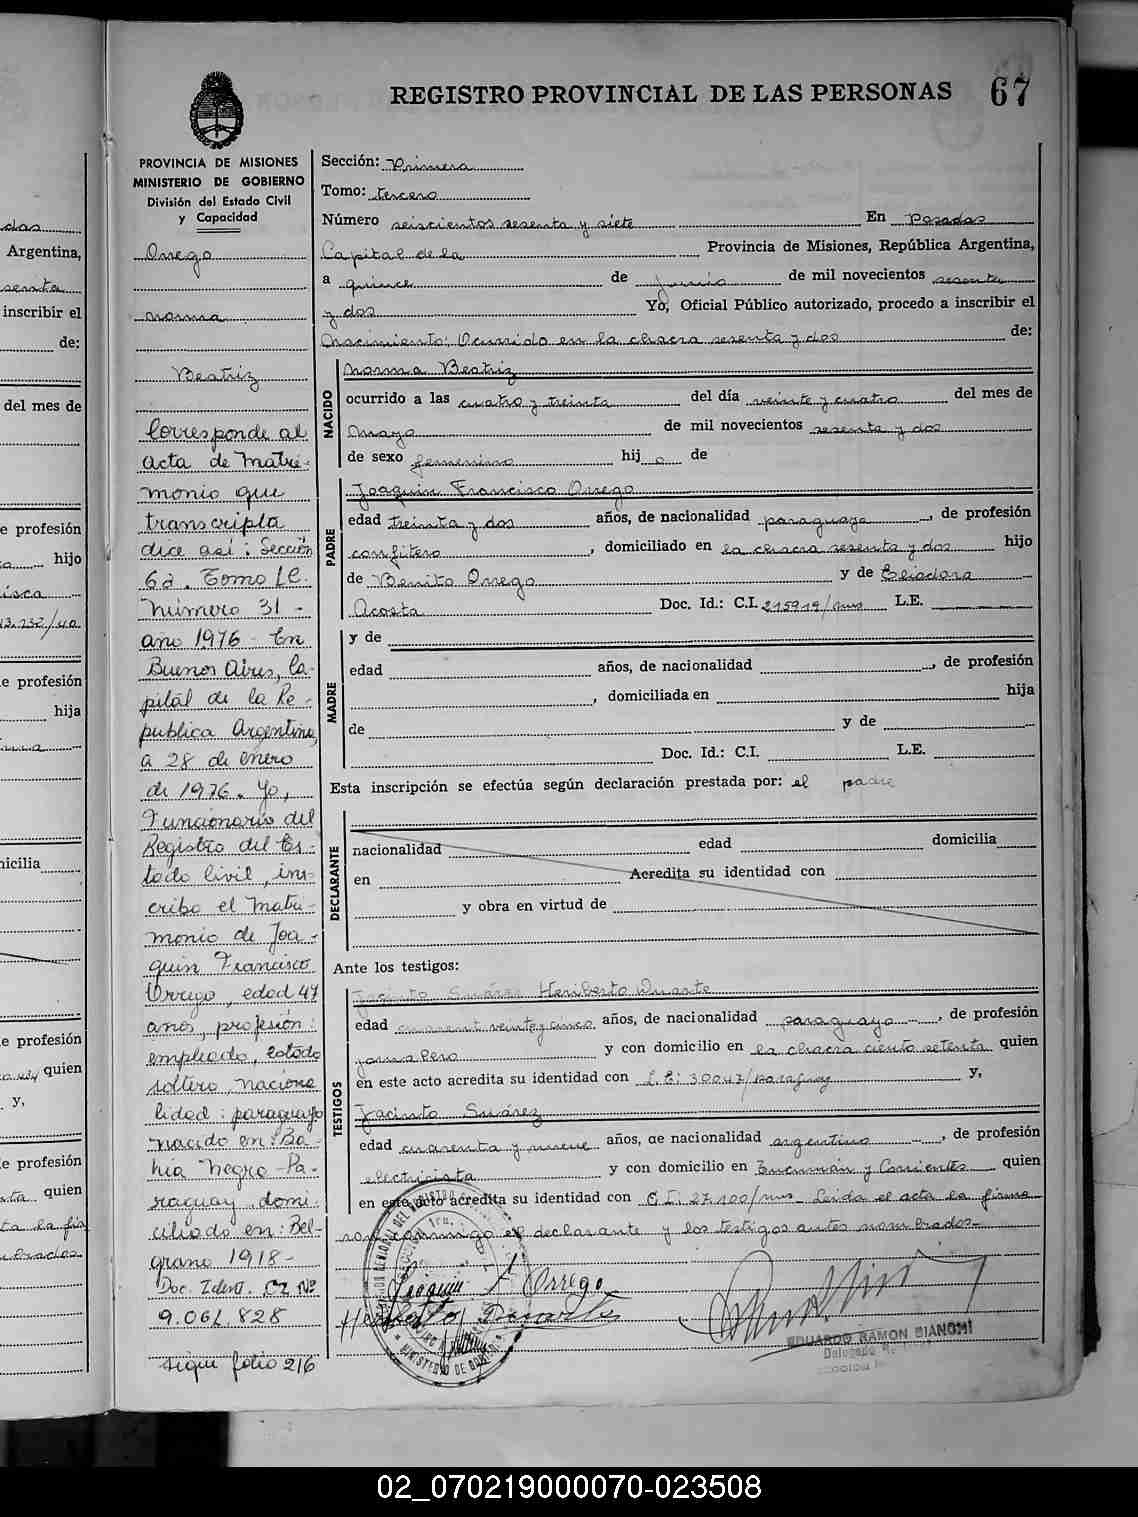 REGISTRO PROVINCIAL DE LAS PERSONAS 67
PROVINCIA DE MISIONES
MINISTERIO DE GOBIERNO
División del Estado Civil
y Capacidad
Orrego
Norma
Beatriz
Corresponde al
acta de Matri-
monio que
transcripta
dice así: Sección
6a. Tomo 1C.
Número 31 -
año 1976 - En
Buenos Aires, Ca-
pital de la Re-
publica Argentina,
a 28 de enero
de 1976. Yo,
Funcionario del
Registro del Es-
tado Civil, ins-
cribo el Matri-
monio de Joa-
quin Francisco
Orrego, edad 47
años, profesión:
empleado, estado
soltero, naciona
lidad: paraguayo
nacido en: Ba-
hia Negra - Pa-
raguay, domi-
ciliado en: Bel-
grano 1918 -
Doc. Ident. CI Nº
9.061.828
sigue folio 216
Sección: Primera
Tomo: tercero
Número seiscientos sesenta y siete En Posadas
Capital de la Provincia de Misiones, República Argentina,
a quince de Junio de mil novecientos sesenta
y dos Yo, Oficial Público autorizado, procedo a inscribir el
Nacimiento: Ocurrido en la chacra sesenta y dos de:
NACIDO
Norma Beatriz
ocurrido a las cuatro y treinta del día veinte y cuatro del mes de
Mayo de mil novecientos sesenta y dos
de sexo femenino hij a de
PADRE
Joaquin Francisco Orrego
edad treinta y dos años, de nacionalidad paraguaya, de profesión
confitero, domiciliado en la chacra sesenta y dos hijo
de Benito Orrego y de Eliadora
Acosta Doc. Id.: C.I. 215919/mns L.E.
MADRE
y de
edad años, de nacionalidad , de profesión
, domiciliada en hija
de y de
Doc. Id.: C.I. L.E.
Esta inscripción se efectúa según declaración prestada por: el padre
DECLARANTE
nacionalidad edad domicilia
en Acredita su identidad con
y obra en virtud de
Ante los testigos:
TESTIGOS
Jacinto Suárez Heriberto Duarte
edad veinte y cinco años, de nacionalidad paraguayo, de profesión
jornalero y con domicilio en la chacra ciento setenta quien
en este acto acredita su identidad con C.I: 30047/paraguay y,
Jacinto Suárez
edad cuarenta y nueve años, de nacionalidad argentino, de profesión
electricista y con domicilio en Tucumán y Corrientes quien
en este acto acredita su identidad con C.I: 27.100/mns. Leida el acta la firma
son conmigo el declarante y los testigos antes nombrados-
Joaquin F Orrego
Heriberto Duarte
EDUARDO RAMON BIANCHI
02_070219000070-023508